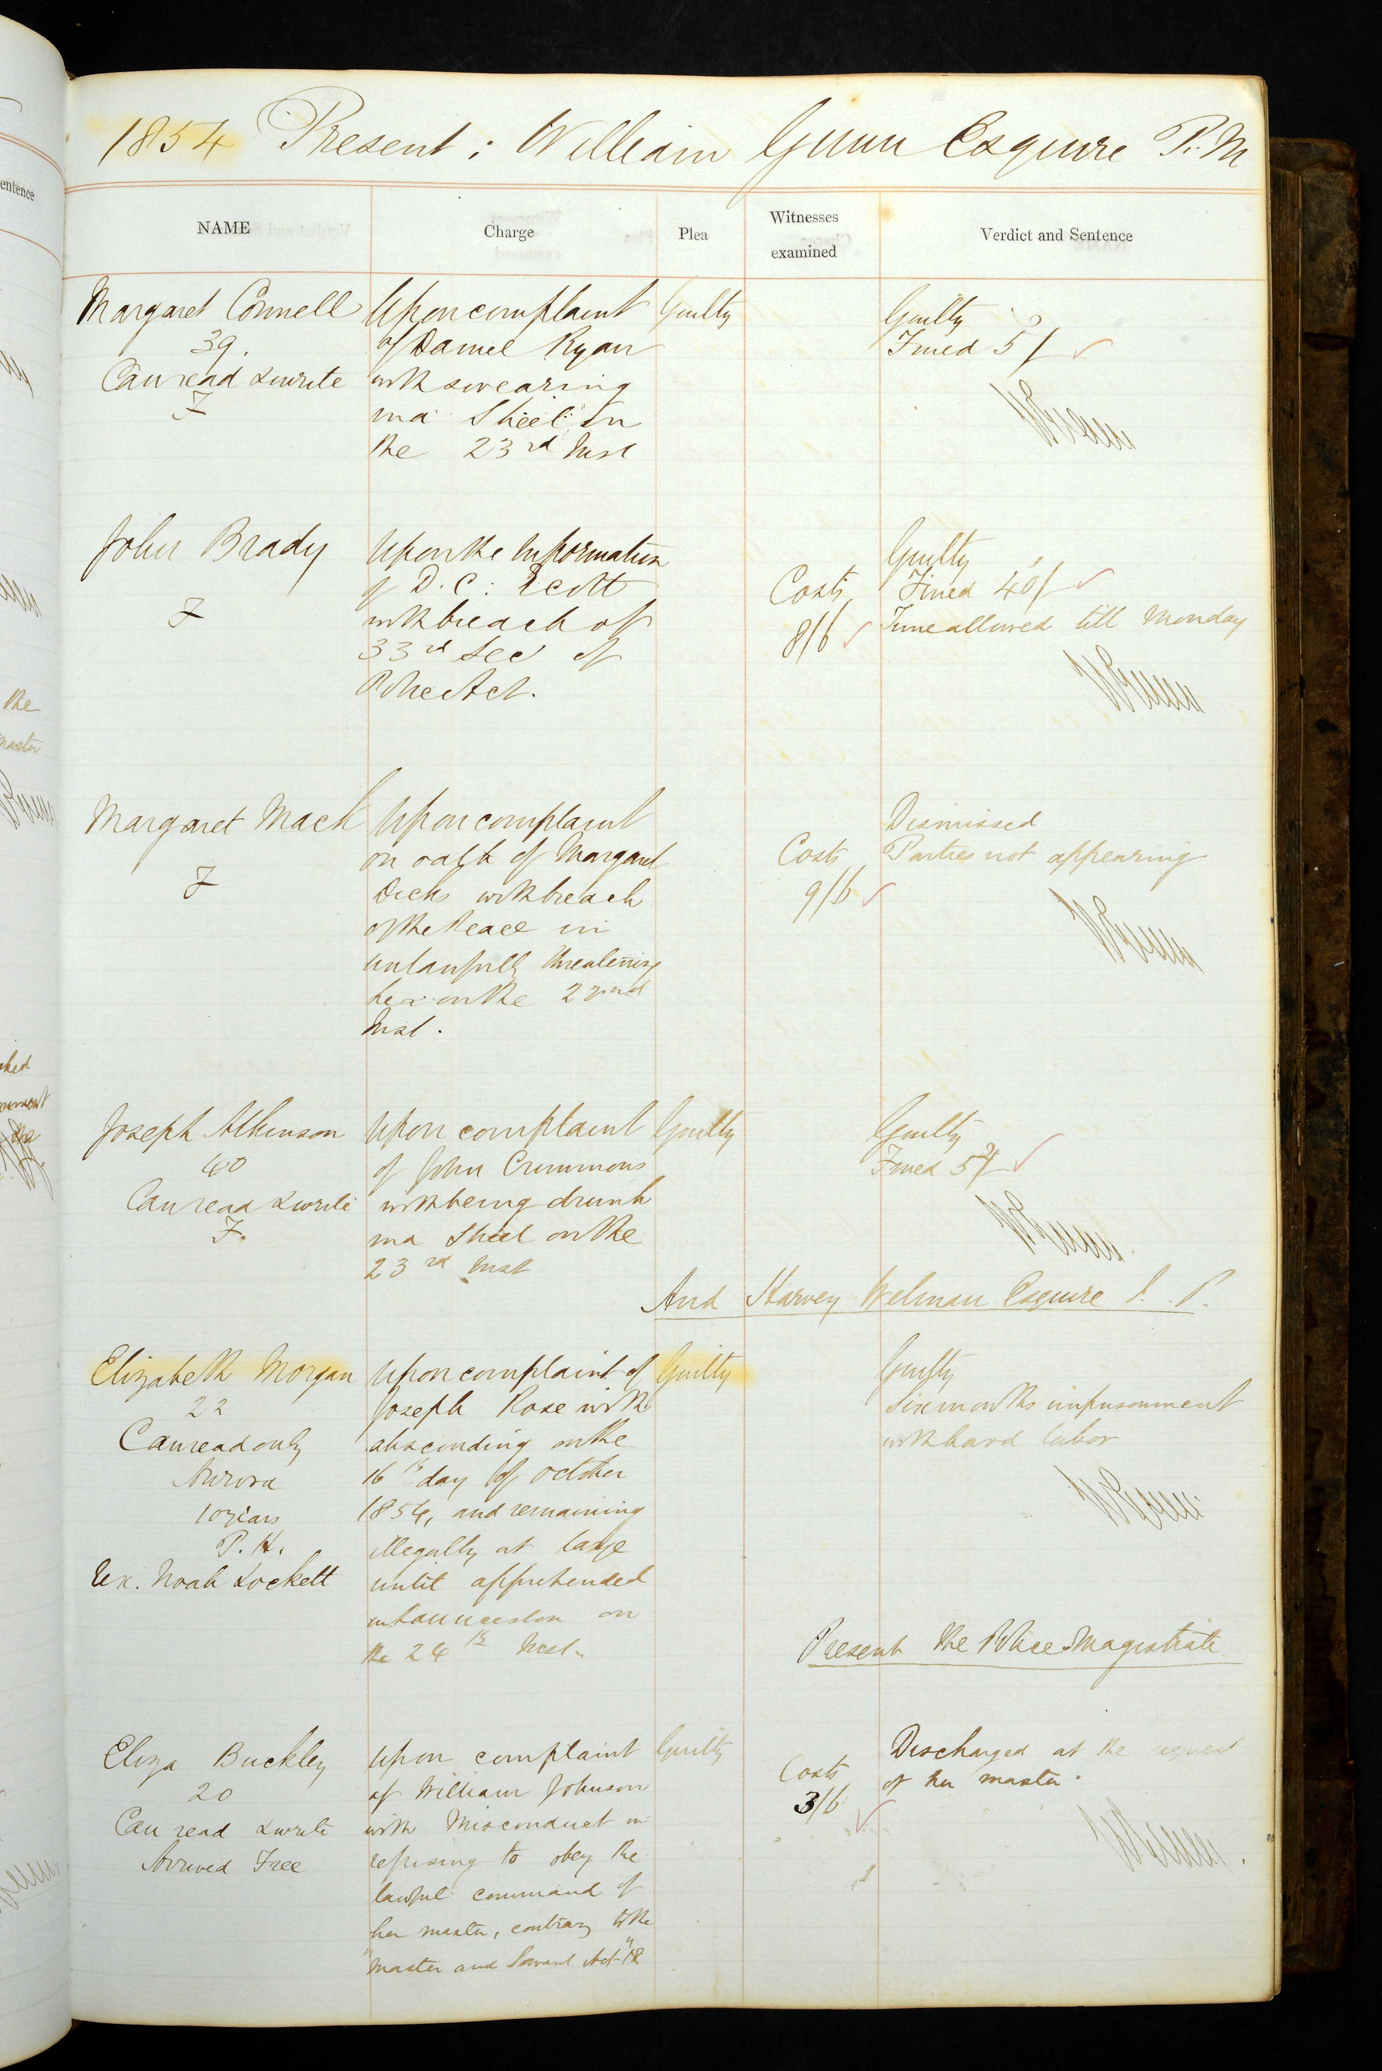 1854 Present: William Gunn Esquire P. M
NAME
Charge
Plea
Witnesses
examined
Verdict and Sentence
Margaret Connell
39.
Can read & write
F
Upon complaint
of Daniel Ryan
with swearing
in a Street on
the 23rd Inst
Guilty
Guilty
Fined 5/
WGunn
John Brady
F
Upon the Information
of D. C: Scott
with breach of
33rd Sec of
Police Act.
Costs
8/6
Guilty
Fined 40/
Time allowed till Monday
WGunn
Margaret Mack
F
Upon complaint
on oath of Margaret
Dicks with breach
of the Peace in
unlawfully threatening
her on the 22nd
Inst.
Costs
9/6
Dismissed
Parties not appearing
WGunn
Joseph Atkinson
40
Can read & write
F.
Upon complaint
of John Crummons
with being drunk
in a Street on the
23rd Inst
Guilty
Guilty
Fined 5/
WGunn
And Harvey Welman Esquire J. P.
Elizabeth Morgan
22
Can read only
Aurora
10 years
P. H.
Ux. Noah Lockett
Upon complaint of
Joseph Rose with
absconding on the
16th day of October
1854, and remaining
illegally at large
until apprehended
in Launceston on
the 24th Inst.
Guilty
Guilty
Six months imprisonment
with hard labor
WGunn
Present the Police Magistrate
Eliza Buckley
20
Can read & write
Arrived Free
Upon complaint
of William Johnson
with Misconduct in
refusing to obey the
lawful command of
her master, contrary to the
"Master and Servant Act" 18
Guilty
Costs
3/6
Discharged at the request
of her master.
WGunn.